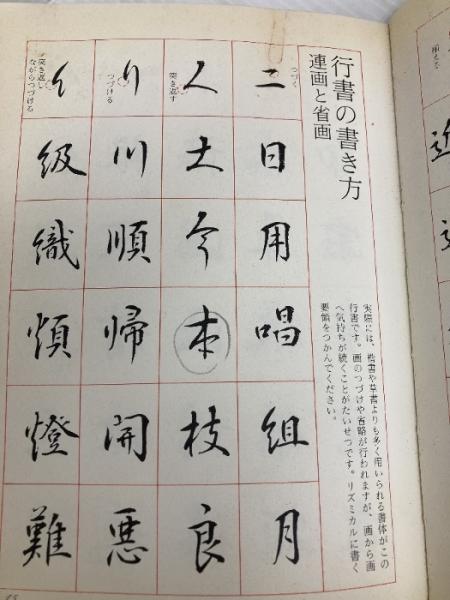 行書の書き方
連画と省画
実際には、楷書や草書よりも多く用いられる書体がこの
行書です。画のつづけや省略が行われますが、画から画
へ気持ちが続くことがたいせつです。リズミカルに書く
要領をつかんでください。
つづく
二
日
用
唱
組
月
突き返す
土
今
本
枝
良
つづける
川
順
帰
開
悪
突き返し
ながらつづける
級
織
煩
燈
難